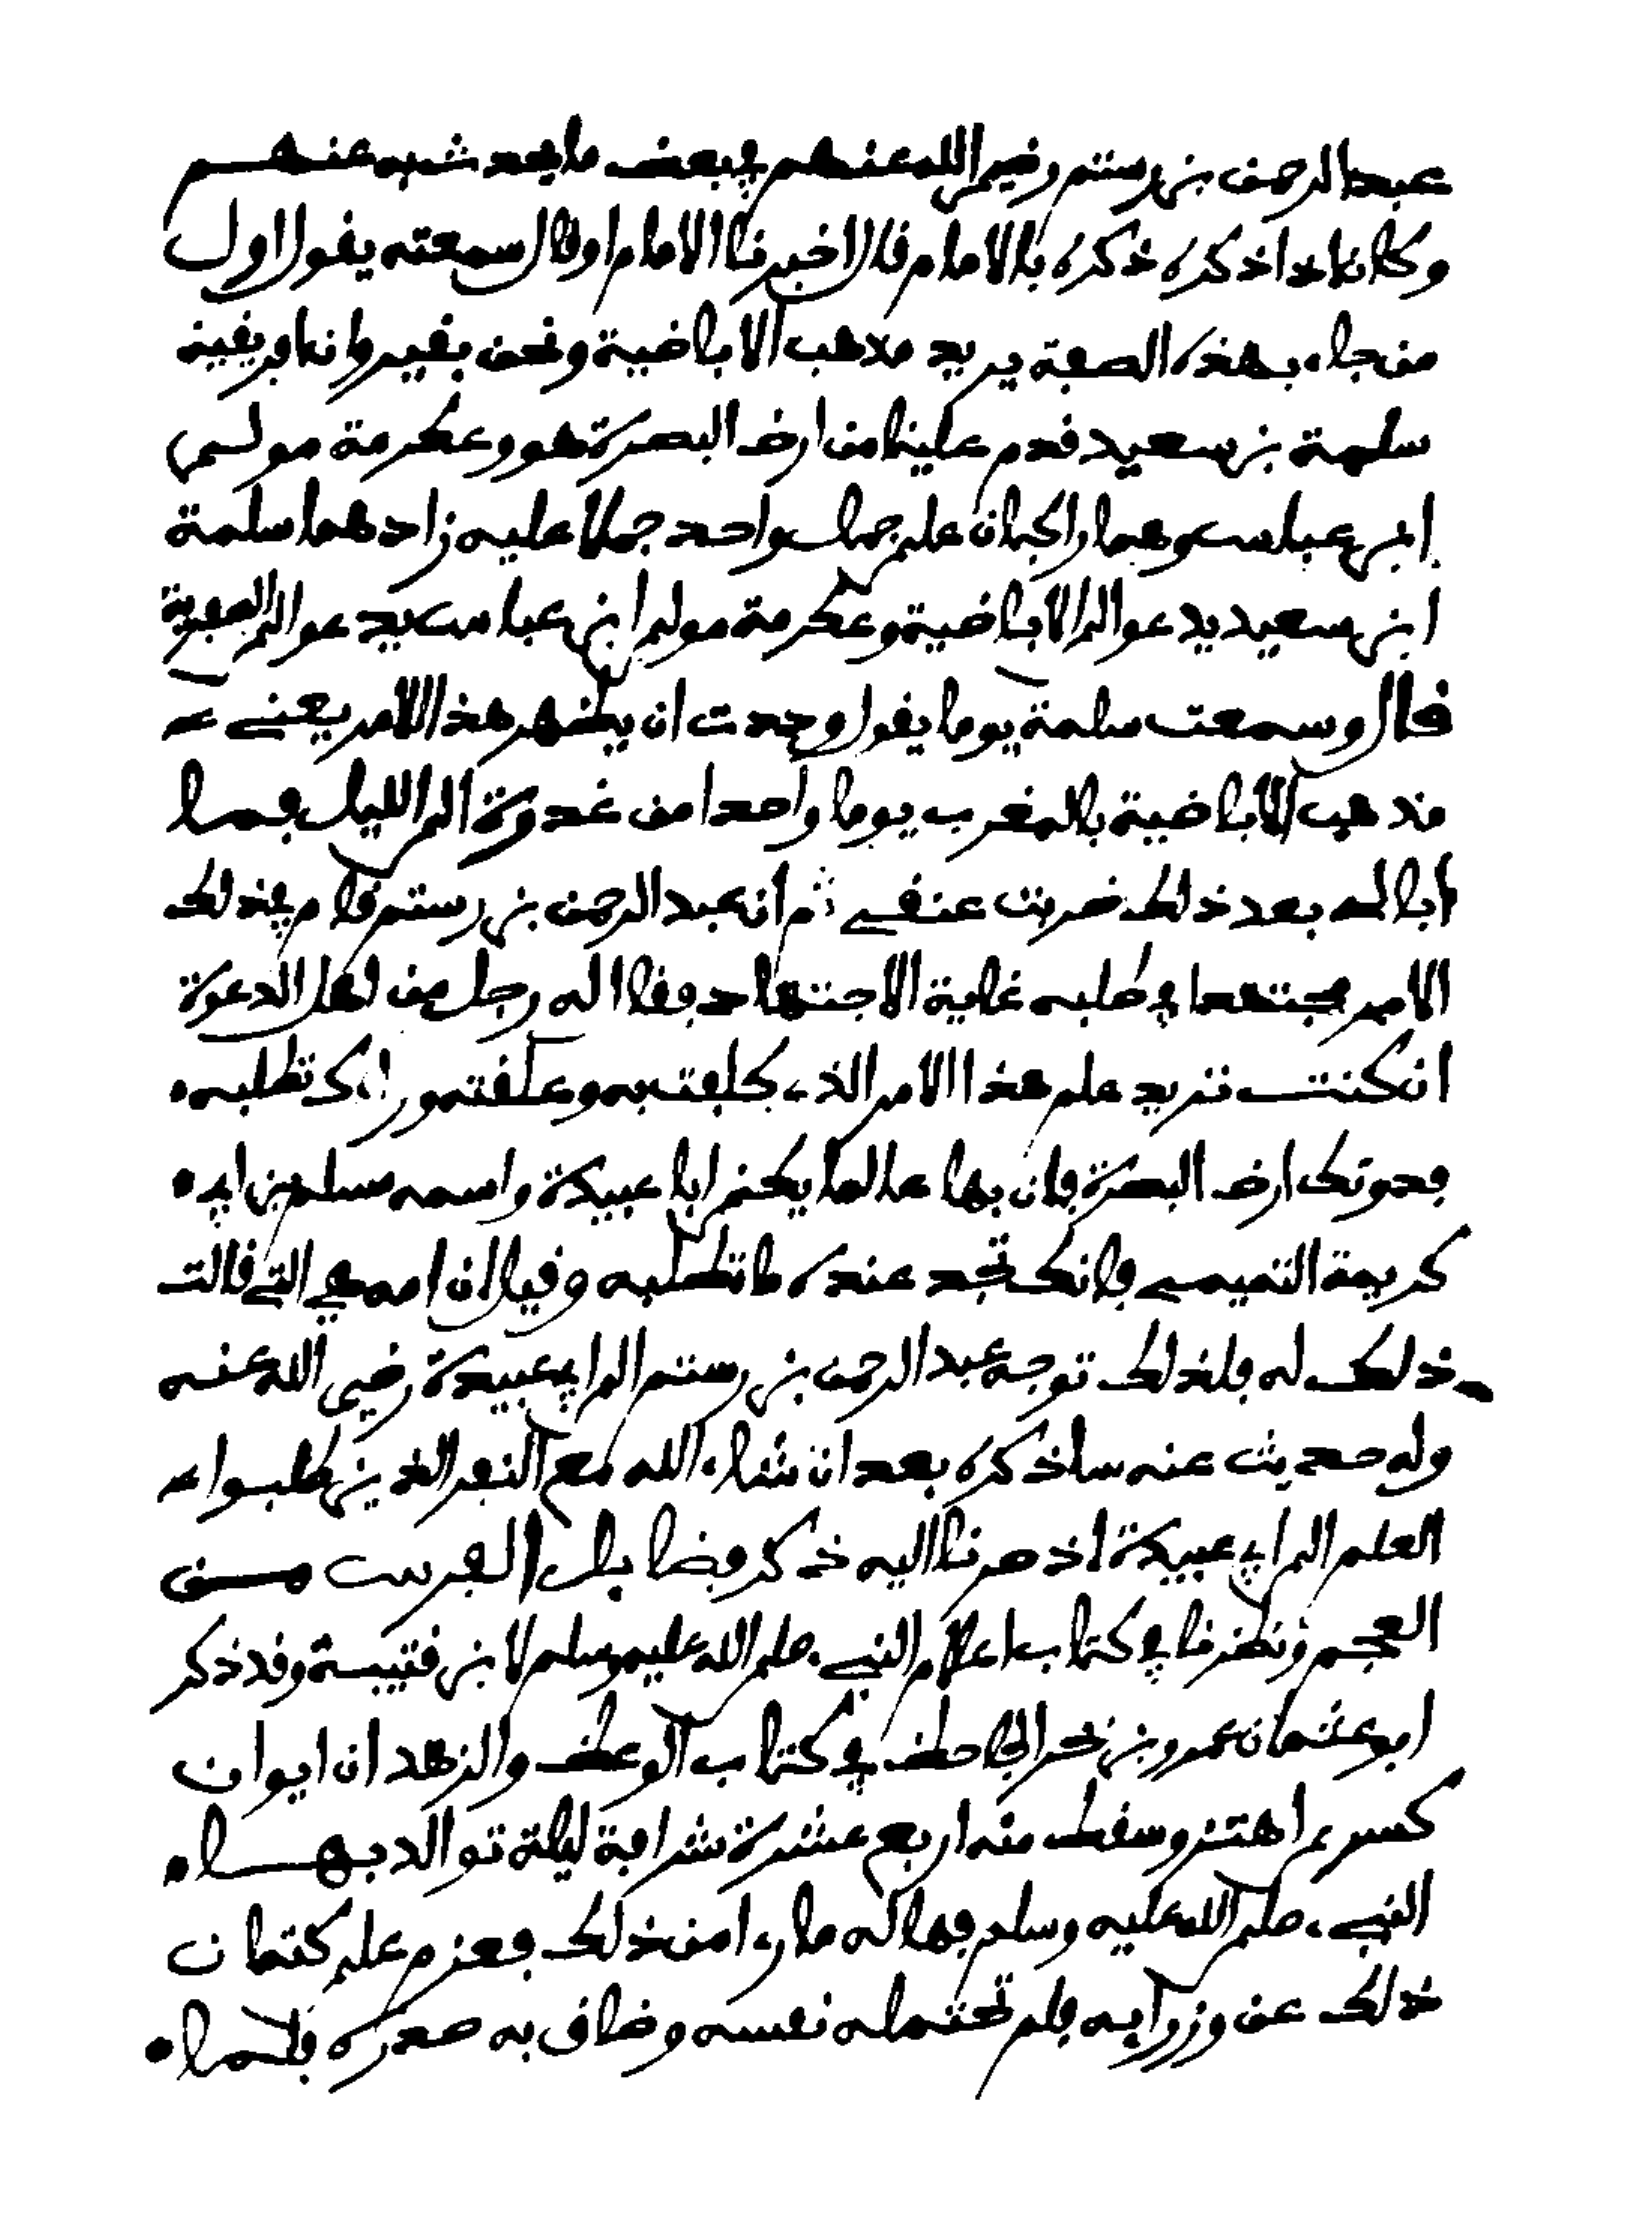 عبد الرحمن بن رستم رضي الله عنهم في بعض ما يحدث به عنهم
وكان اذا ذكره ذكره بالامام قال اخبرنا الامام او قال سمعته يقول اول
من جاء بهذه الصفة يريد مذهب الاباضية ونحن بقيروان افريقية
سلمة بن سعيد قدم علينا من ارض البصرة هو وعكرمة مولى
ابن عباس وهما راكبان على جمل واحد حملا عليه زادهما سلمة
ابن سعيد يدعوا الى الاباضية وعكرمة مولى ابن عباس يدعوا الى الصفرية
قال وسمعت سلمة يوما يقول وددت ان يظهر هذا الامر يعني
مذهب الاباضية بالمغرب يوما واحدا من غدوة الى الليل فما
ابالي بعد ذلك ضربت عنقي ثم ان عبد الرحمن بن رستم قام في ذلك
الامر مجتهدا في طلبه غاية الاجتهاد فقال له رجل من اهل الدعوة
ان كنت تريد علم هذا الامر الذي كلفت به وعلقته وراك تطلبه
فدونك ارض البصرة فان بها عالما يكنى ابا عبيدة واسمه مسلم بن ابي
كريمة التميمي فانك تجد عنده ما تطلبه وقيل ان امه هي التي قالت
ذلك له فلذلك توجه عبد الرحمن بن رستم الى ابي عبيدة رضي الله عنه
وله حديث عنه ساذكره بعد ان شاء الله مع النفر الذين طلبوا
العلم الى ابي عبيدة اذ صرنا اليه ذكر فضايل الفرس من
العجم ونظرنا في كتاب اعلام النبيء صلى الله عليه وسلم لابن قتيبة وقد ذكر
ابو عثمان عمرو بن بحر الجاحظ في كتاب الوعظ والزهد ان ايوان
كسرى اهتز وسقط منه اربع عشرة شرافة ليلة توالد بها
النبيء صلى الله عليه وسلم فهاله ما رءا من ذلك فعزم على كتمان
ذلك عن وزرايه فلم تحتمله نفسه وضاق به صدره فلما